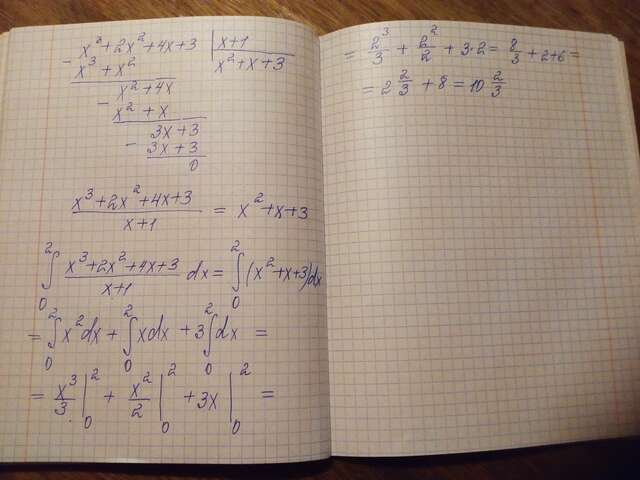 x³+2x²+4x+3 | x+1
- x³+x² | x²+x+3
x²+4x
- x²+x
3x+3
- 3x+3
0
(x³+2x²+4x+3)/(x+1) = x²+x+3
∫₀² (x³+2x²+4x+3)/(x+1) dx = ∫₀² (x²+x+3)dx
= ∫₀² x²dx + ∫₀² xdx + 3∫₀² dx =
= x³/3 |₀² + x²/2 |₀² + 3x |₀² =
= 2³/3 + 2²/2 + 3·2 = 8/3 + 2+6 =
= 2 2/3 + 8 = 10 2/3